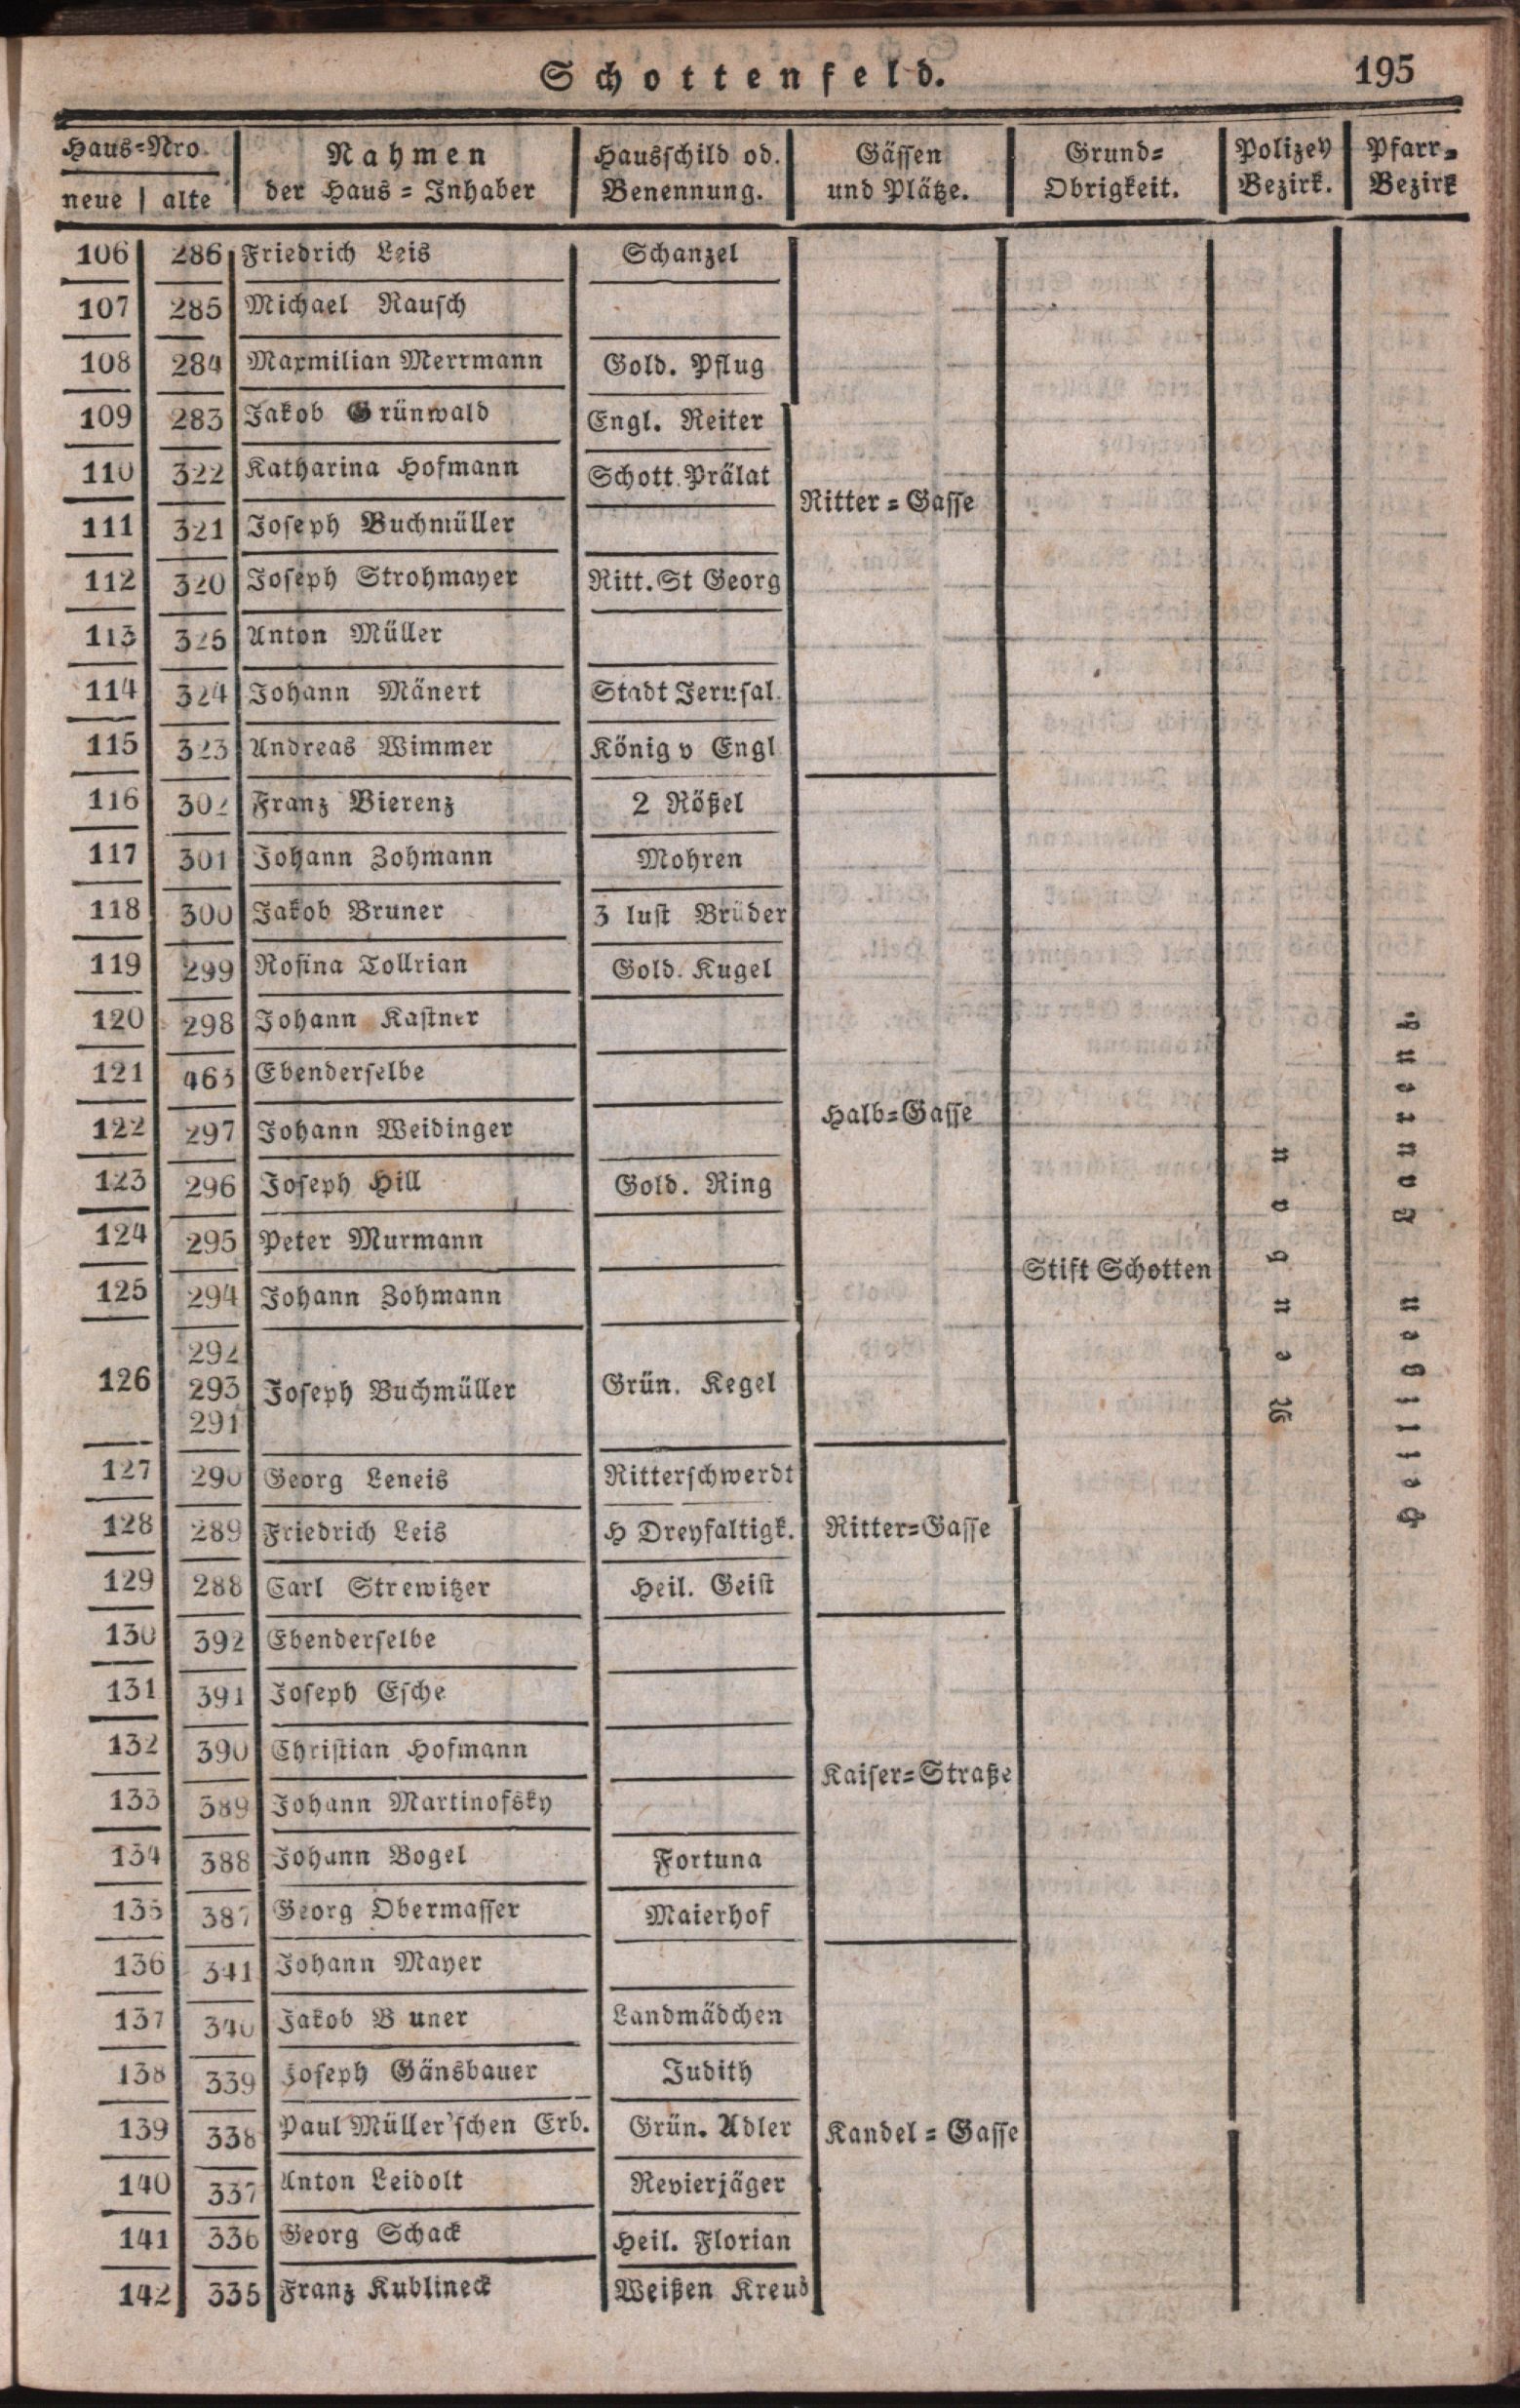 Schottenfeld.
195
Haus=Nro.
neue | alte
Nahmen
der Haus=Inhaber
Hausschild od.
Benennung.
Gässen
und Plätze.
Grund=
Obrigkeit.
Polizey
Bezirk.
Pfarr=
Bezirk
106 286 Friedrich Leis Schanzel
107 285 Michael Rausch
108 284 Maxmilian Merrmann Gold. Pflug
109 283 Jakob Grünwald Engl. Reiter
110 322 Katharina Hofmann Schott. Prälat
Ritter=Gasse
111 321 Joseph Buchmüller
112 320 Joseph Strohmayer Ritt. St Georg
113 325 Anton Müller
114 324 Johann Mänert Stadt Jerusal.
115 323 Andreas Wimmer König v Engl
116 302 Franz Bierenz 2 Rößel
117 301 Johann Zohmann Mohren
118 300 Jakob Bruner 3 lust Brüder
119 299 Rosina Tollrian Gold. Kugel
120 298 Johann Kastner
121 463 Ebenderselbe
Halb=Gasse
122 297 Johann Weidinger
123 296 Joseph Hill Gold. Ring
124 295 Peter Murmann
Stift Schotten
Neugebäu
125 294 Johann Zohmann
126 292
293 Joseph Buchmüller Grün. Kegel
291
127 290 Georg Leneis Ritterschwerdt
128 289 Friedrich Leis H Dreyfaltigk. Ritter=Gasse
129 288 Carl Strewitzer Heil. Geist
130 392 Ebenderselbe
131 391 Joseph Esche
132 390 Christian Hofmann
Kaiser=Straße
133 389 Johann Martinofsky
134 388 Johann Vogel Fortuna
135 387 Georg Obermasser Maierhof
136 341 Johann Mayer
137 340 Jakob B uner Landmädchen
138 339 Joseph Gänsbauer Judith
139 338 Paul Müller'schen Erb. Grün. Adler Kandel=Gasse
140 337 Anton Leidolt Revierjäger
141 336 Georg Schack Heil. Florian
142 335 Franz Kublineck Weißen Kreuß